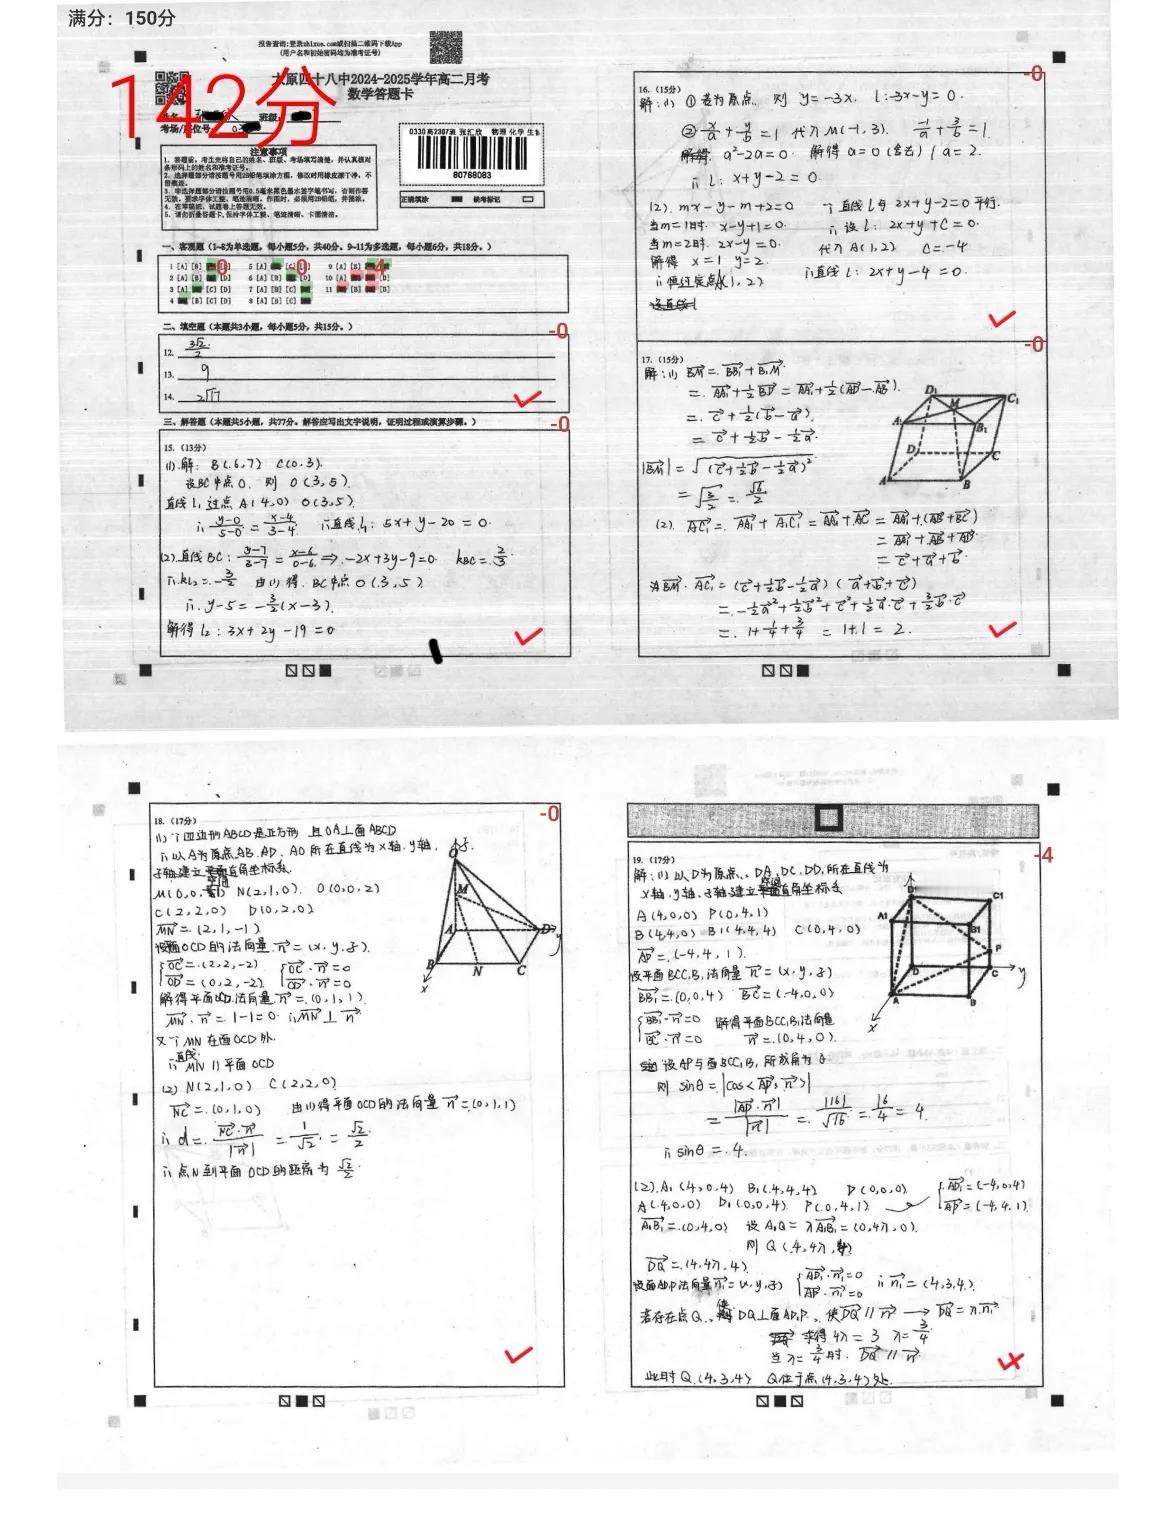 满分：150分
报告查询:登录zhixue.com或扫描二维码下载App
(用户名和初始密码均为准考证号)
太原四十八中2024-2025学年高二月考
数学答题卡
142分
姓名: 班级:
考场/座位号:
注意事项
1. 答题前，考生先将自己的姓名、班级、考场填写清楚，并认真核对
条形码上的姓名和准考证号。
2. 选择题部分请按题号用2B铅笔填涂方框，修改时用橡皮擦干净，不
留痕迹。
3. 非选择题部分请按题号用0.5毫米黑色墨水签字笔书写，否则作答
无效。要求字体工整、笔迹清晰。作图时，必须用2B铅笔，并描浓。
4. 在草稿纸、试题卷上答题无效。
5. 请勿折叠答题卡,保持字体工整、笔迹清晰、卡面清洁。
0330 高2307班 物理 化学 生
80768083
正确填涂 缺考标记
一、客观题（1~8为单选题，每小题5分，共40分。9~11为多选题，每小题6分，共18分。）
-0 -0 -4
1 [A] [B] [D] 5 [A] [C] 9 [A] [B]
2 [A] [B] [D] 6 [A] [B] [D] 10 [A] [D]
3 [A] [C] [D] 7 [A] [B] [C] 11 [B] [D]
4 [B] [C] [D] 8 [A] [B] [C]
二、填空题（本题共3小题，每小题5分，共15分。）
-0
12. 3√2/2
13. 9
14. 2√17
三、解答题（本题共5小题，共77分。解答应写出文字说明，证明过程或演算步骤。）
-0
15.（13分）
(1).解: B(6,7) C(0,3).
设BC中点O. 则 O(3,5).
直线l₁过点A(4,0) O(3,5).
∴ (y-0)/(5-0) = (x-4)/(3-4) ∴直线l₁: 5x+y-20=0.
(2).直线BC: (y-7)/(3-7) = (x-6)/(0-6) ⇒ -2x+3y-9=0. kBC=2/3.
∴kl₂=-3/2 由(1)得. BC中点O(3,5)
∴ y-5=-3/2(x-3).
解得l₂: 3x+2y-19=0
-0
16.（15分）
解:(1) ①若为原点. 则 y=-3x. l:-3x-y=0.
②x/a+y/b=1 代入M(-1,3). -1/a+3/b=1.
解得. a²-2a=0. 解得a=0(舍去) / a=2.
∴ l: x+y-2=0.
(2). mx-y-m+2=0 ∵直线l与2x+y-2=0平行.
当m=1时. x-y+1=0. ∴设l: 2x+y+C=0.
当m=2时. 2x-y=0. 代入A(1,2) C=-4
解得 x=1 y=2. ∴直线l: 2x+y-4=0.
∴恒过定点A(1,2)
-0
17.（15分）
解:(1) BM=BB₁+B₁M
=AA₁+1/2BD=AA₁+1/2(AD-AB).
=c+1/2(b-a).
=c+1/2b-1/2a.
|BM|=√(c+1/2b-1/2a)²
=√3/2=√6/2
(2). AC₁=AA₁+A₁C₁=AA₁+AC=AA₁+(AB+BC)
=AA₁+AB+AD
=c+a+b.
BM·AC₁=(c+1/2b-1/2a)(a+b+c)
=-1/2a²+1/2b²+c²+1/2a·c+3/2b·c
=1+1/4+3/4=1+1=2.
D₁ C₁ M A₁ B₁ D C A B
-0
18.（17分）
(1) ∵四边形ABCD是正方形 且OA⊥面ABCD
∴以A为原点AB、AD、AO所在直线为x轴、y轴、
z轴建立空间直角坐标系
M(0,0,1) N(2,1,0). O(0,0,2)
C(2,2,0) D(0,2,0)
MN=(2,1,-1)
设面OCD的法向量n=(x,y,z).
OC=(2,2,-2) OC·n=0
OD=(0,2,-2) OD·n=0
解得平面OCD法向量n=(0,1,1).
MN·n=1-1=0 ∴MN⊥n
又∵MN在面OCD外.
∴直线MN∥平面OCD
(2) N(2,1,0) C(2,2,0)
NC=(0,1,0) 由(1)得平面OCD的法向量n=(0,1,1)
∴ d=NC·n/|n|=1/√2=√2/2
∴点N到平面OCD的距离为√2/2.
O z M A D y B N C x
-4
19.（17分）
解:(1) 以D为原点、DA、DC、DD₁所在直线为
x轴、y轴、z轴建立空间直角坐标系
A(4,0,0) P(0,4,1)
B(4,4,0) B₁(4,4,4) C(0,4,0)
AP=(-4,4,1)
设平面BCC₁B₁法向量n=(x,y,z)
BB₁=(0,0,4) BC=(-4,0,0)
BB₁·n=0 解得平面BCC₁B₁法向量
BC·n=0 n=(0,4,0).
设AP与面BCC₁B₁所成角为θ
则 sinθ=|cos<AP,n>|
=|AP·n|/|n|=|16|/√16=16/4=4.
∴sinθ=4.
(2).A₁(4,0,4) B₁(4,4,4) D(0,0,0). AD₁=(-4,0,4)
A(4,0,0) D₁(0,0,4) P(0,4,1) AP=(-4,4,1).
A₁B₁=(0,4,0) 设A₁Q=λA₁B₁=(0,4λ,0).
则Q(4,4λ,4)
DQ=(4,4λ,4)
设面AD₁P法向量n₁=(x,y,z) AD₁·n₁=0 ∴n₁=(4,3,4).
AP·n₁=0
若存在点Q、使DQ⊥面AD₁P、使DQ∥n → DQ=λn₁
求得4λ=3 λ=3/4
当λ=3/4时. DQ∥n
此时Q(4,3,4) Q位于点(4,3,4)处.
D₁ C1 A1 B1 P D C y A B x